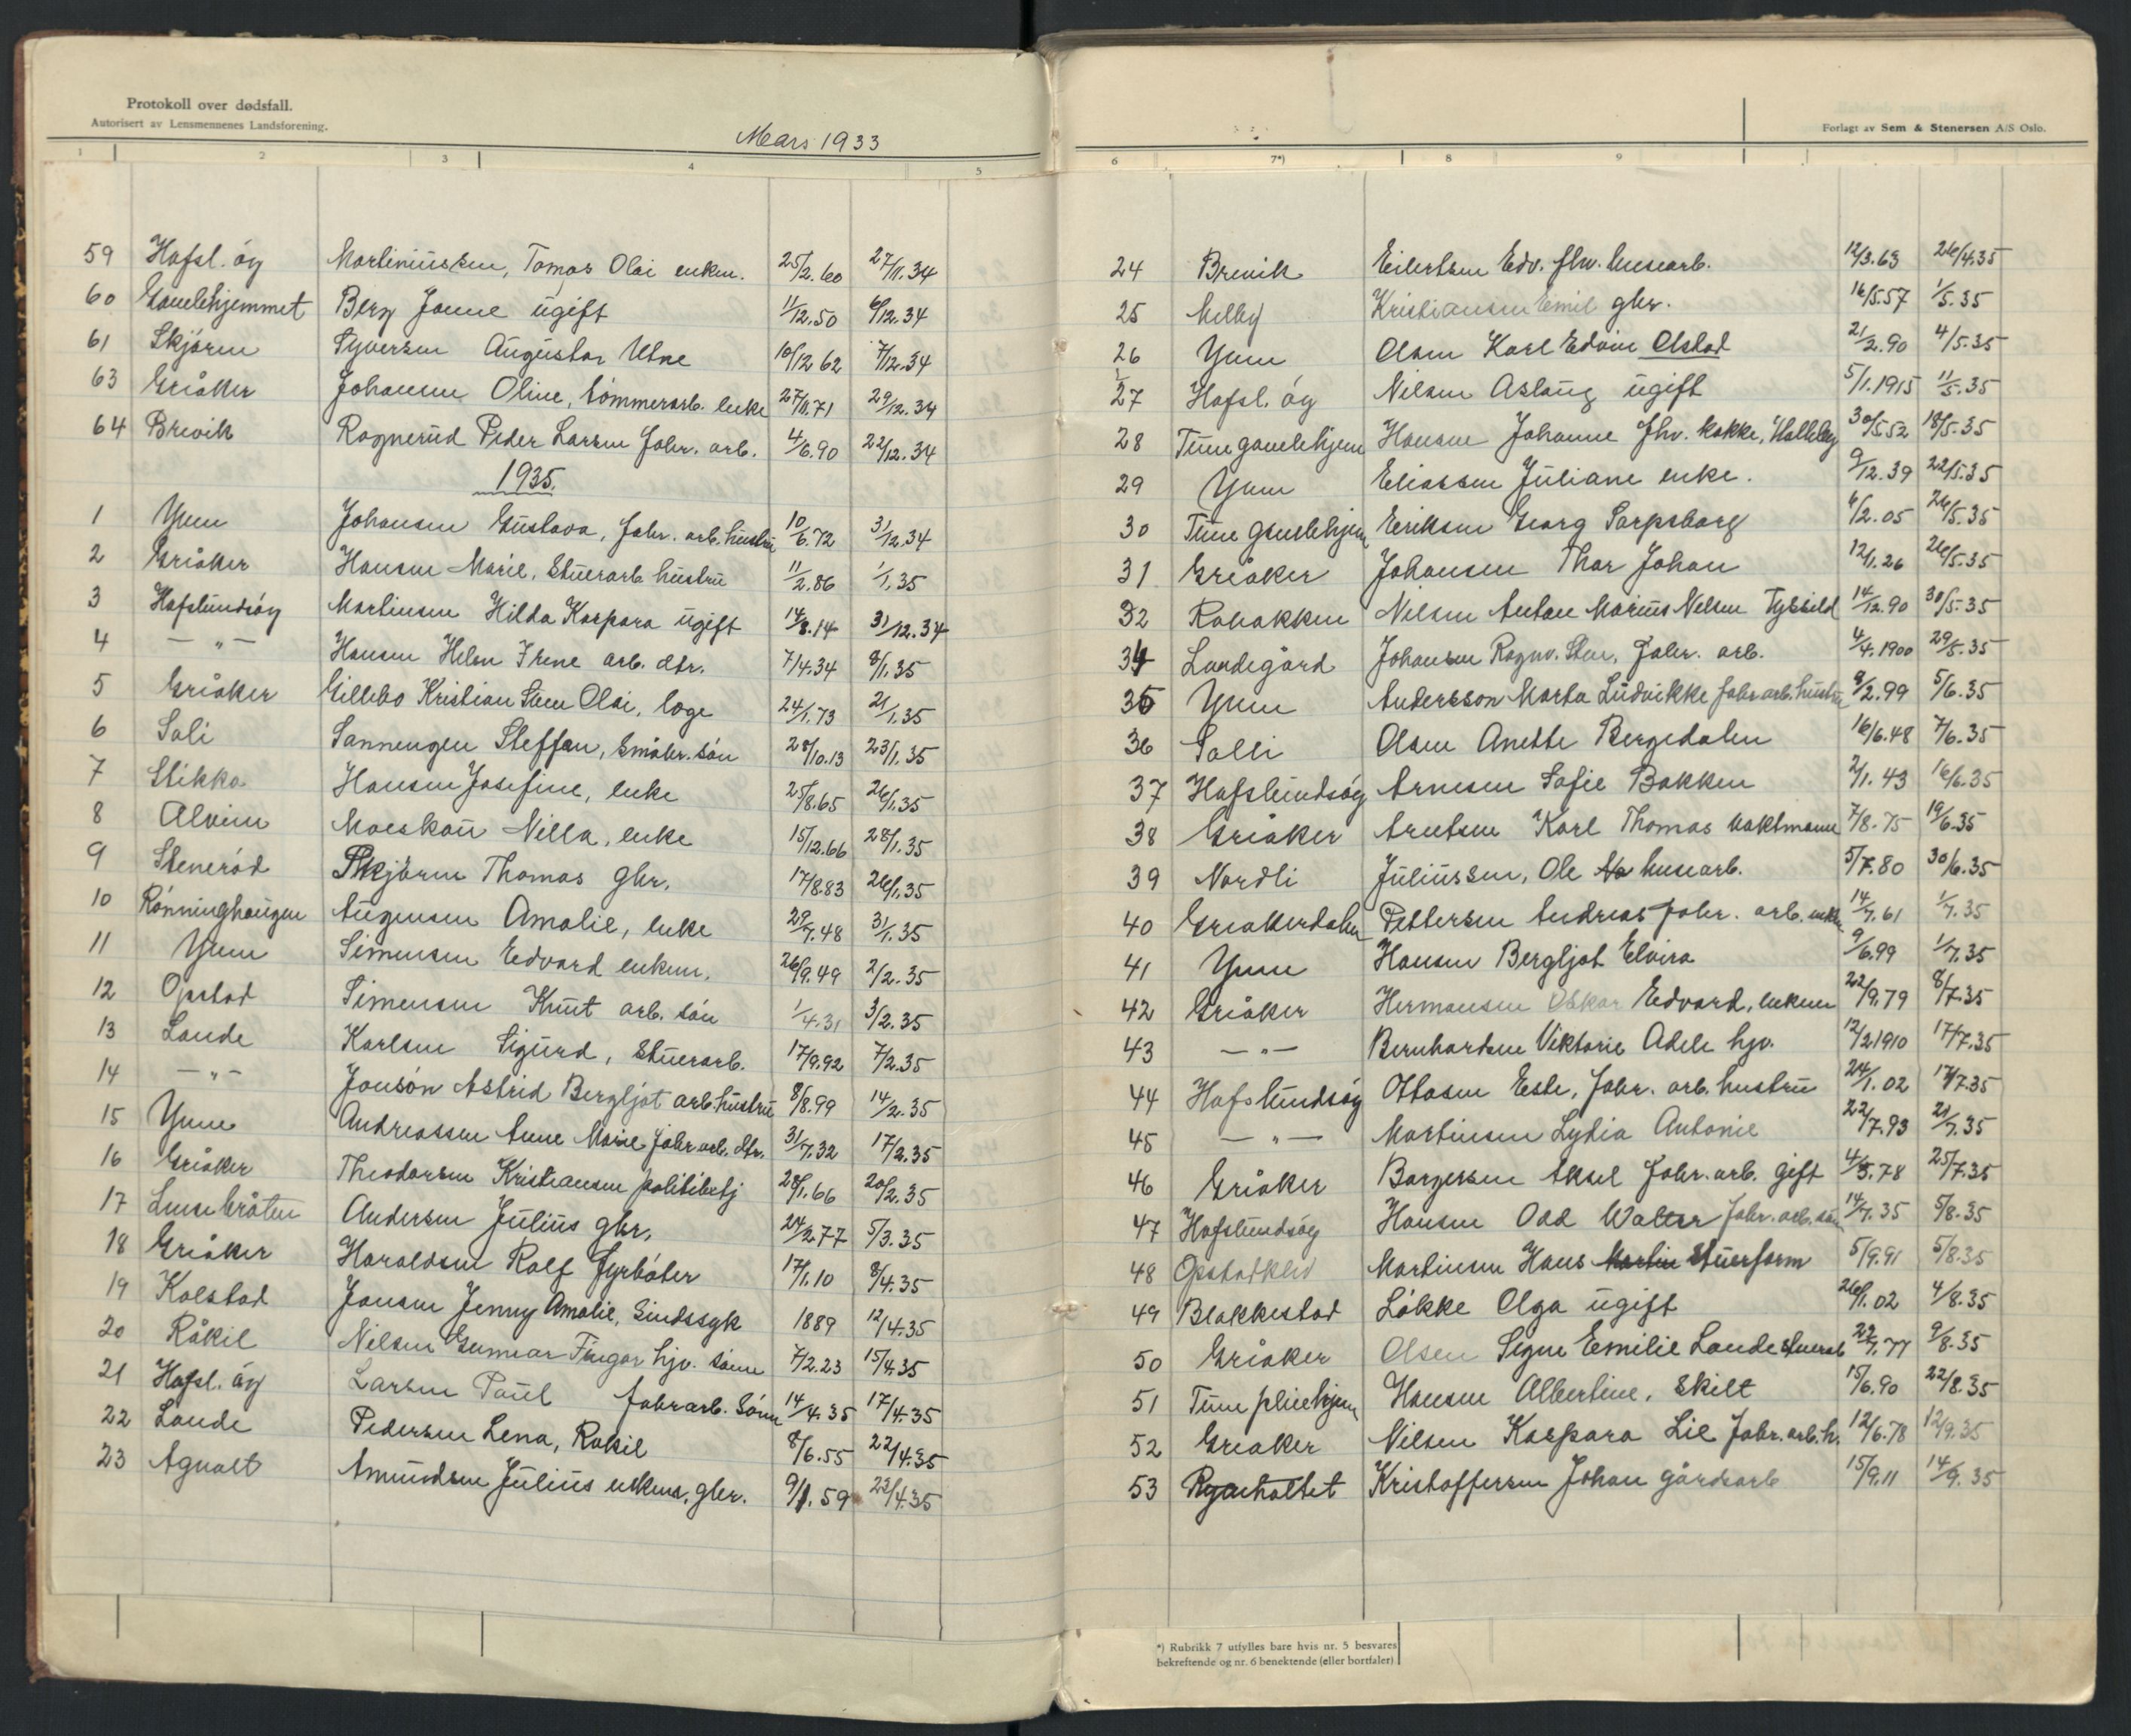 Protokoll over dødsfall.
Autorisert av Lensmennenes Landsforening.
Mars 1933
1 2 3 4 5
59 Hafsl. öy Martiniussen, Tomas Olai enkem. 25/2.60 27/11.34
60 Gamlehjemmet Berg Janne ugift 11/12.50 6/12.34
61 Skjören Syversen Augusta Utne 10/12 62 7/12.34
63 Greåker Johansen Oline, tömmerarb. enke 27/11.71 29/12.34
64 Brevik Ragnerud Peder Larsen fabr. arb. 4/6.90 22/12.34
1935.
1 Yven Johansen Gustava, fabr. arb. hustru 10/6.72 31/12.34
2 Greåker Hansen Marie, Stuerarb hustru 11/2.86 1/1.35
3 Hafslundsöy Martinsen Hilda Kaspara ugift 14/8.14 31/12.34
4 — „ — Hansen Helen Irene arb. dtr. 7/4.34 8/1.35
5 Greåker Gillebo Kristian Steen Olai, læge 24/1.73 21/1.35
6 Soli Sannengen Steffen, småbr. sön 28/10.13 23/1.35
7 Stikka Hansen Josefine, enke 25/8.65 26/1.35
8 Alvim Moeskau Nilla, enke 15/12.66 28/1.35
9 Stenerød Skjören Thomas gbr. 17/8.83 26/1.35
10 Rönninghaugen Augensen Amalie, enke 29/7.48 31/1.35
11 Yven Simensen Edvard enkem. 26/9.49 2/2.35
12 Opstad Simensen Knut arb. sön 1/4.31 3/2.35
13 Lande Karlsen Sigurd, Stuerarb. 17/9.92 7/2.35
14 — „ — Jonsön Astrid Bergljot arb. hustru 8/8.99 14/2.35
15 Yven Andreassen Anne Marie fabr arb. dtr. 31/7.32 17/2.35
16 Greåker Theodorsen Kristiansen politibetj 28/1.66 20/2.35
17 Lensebråten Andersen Julius gbr. 24/2 77 5/3.35
18 Greåker Haraldsen Rolf fyrböter 17/1.10 8/4.35
19 Kolstad Jansen Jenny Amalie, Sindssyk 1889 12/4.35
20 Råkil Nilsen Gunnar Fingar hjv. sönn 7/2.23 15/4.35
21 Hafsl. öy Larsen Paul fabrarb. Sönn 14/4.35 17/4.35
22 Lande Pedersen Lena, Råkil 8/6.55 22/4.35
23 Agnalt Amundsen Julius enkem. gbr. 9/1.59 23/4.35
Forlagt av Sem & Stenersen A/S Oslo.
6 7*) 8 9
24 Brevik Eilertsen Edv. fhv. brusearb. 12/3.63 26/4.35
25 Melby Kristiansen Emil gbr. 16/5.57 1/5.35
26 Yven Olsen Karl Edvin Olstad 21/2.90 4/5.35
27 Hafsl. öy Nilsen Aslaug ugift 5/1.1915 11/5.35
28 Tune gamlehjem Hansen Johanne fhv. kokke, Halleby 30/5.52 18/5.35
29 Yven Eliassen Juliane enke. 9/12.39 22/5.35
30 Tune Gamlehjem Eriksen Georg Sarpsborg 6/2.05 26/5.35
31 Greåker Johansen Thor Johan 12/1.26 26/5.35
32 Rabakken Nilsen Anton Marius Nelsen Tyssild 14/12.90 30/5.35
34 Landegård Johansen Ragnv. Sten, fabr. arb. 4/4.1900 29/5.35
35 Yven Andersson Marta Ludvikke fabr arb. hustru 9/2.99 5/6.35
36 Solli Olsen Anette Bergedalen 16/6.48 7/6.35
37 Hafslundsöy Arnesen Sofie Bakken 2/1.43 16/6.35
38 Greåker Arntsen Karl Thomas vaktmann 7/8.75 19/6.35
39 Nordli Juliussen, Ole brusearb. 5/7.80 30/6.35
40 Greåkerdalen Pettersen Andreas fabr. arb. enkem 14/7.61 1/7.35
41 Yven Hansen Bergljot Elvira 9/6.99 1/7.35
42 Greåker Hermansen Oskar Edvard, enkem 22/9.79 8/7.35
43 — „ — Bernhardsen Viktorie Adele hjv. 12/2.1910 17/7.35
44 Hafslundsöy Ottosen Este, fabr. arb. hustru 24/1.02 17/7.35
45 — „ — Martinsen Lydia Antonie 22/7.93 21/7.35
46 Greåker Borgersen Aksel fabr. arb. gift 4/3.78 25/7.35
47 Hafslundsöy Hansen Odd Walter fabr. arb. sön 14/7.35 5/8.35
48 Opstadklev Martinsen Hans Martin Stuerform 5/9.91 5/8.35
49 Blakkestad Løkke Olga ugift 26/1.02 4/8.35
50 Greåker Olsen Signe Emilie Lande stuerarb 22/7.77 9/8.35
51 Tune pleiehjem Hansen Albertine, Skilt 15/6.90 22/8.35
52 Greåker Nilsen Kaspara Lie fabr. arb. h. 12/6.78 12/9.35
53 Ryenholtet Kristoffersen Johan gårdsarb 15/9.11 14/9.35
*) Rubrikk 7 utfylles bare hvis nr. 5 besvares
bekreftende og nr. 6 benektende (eller bortfaler)